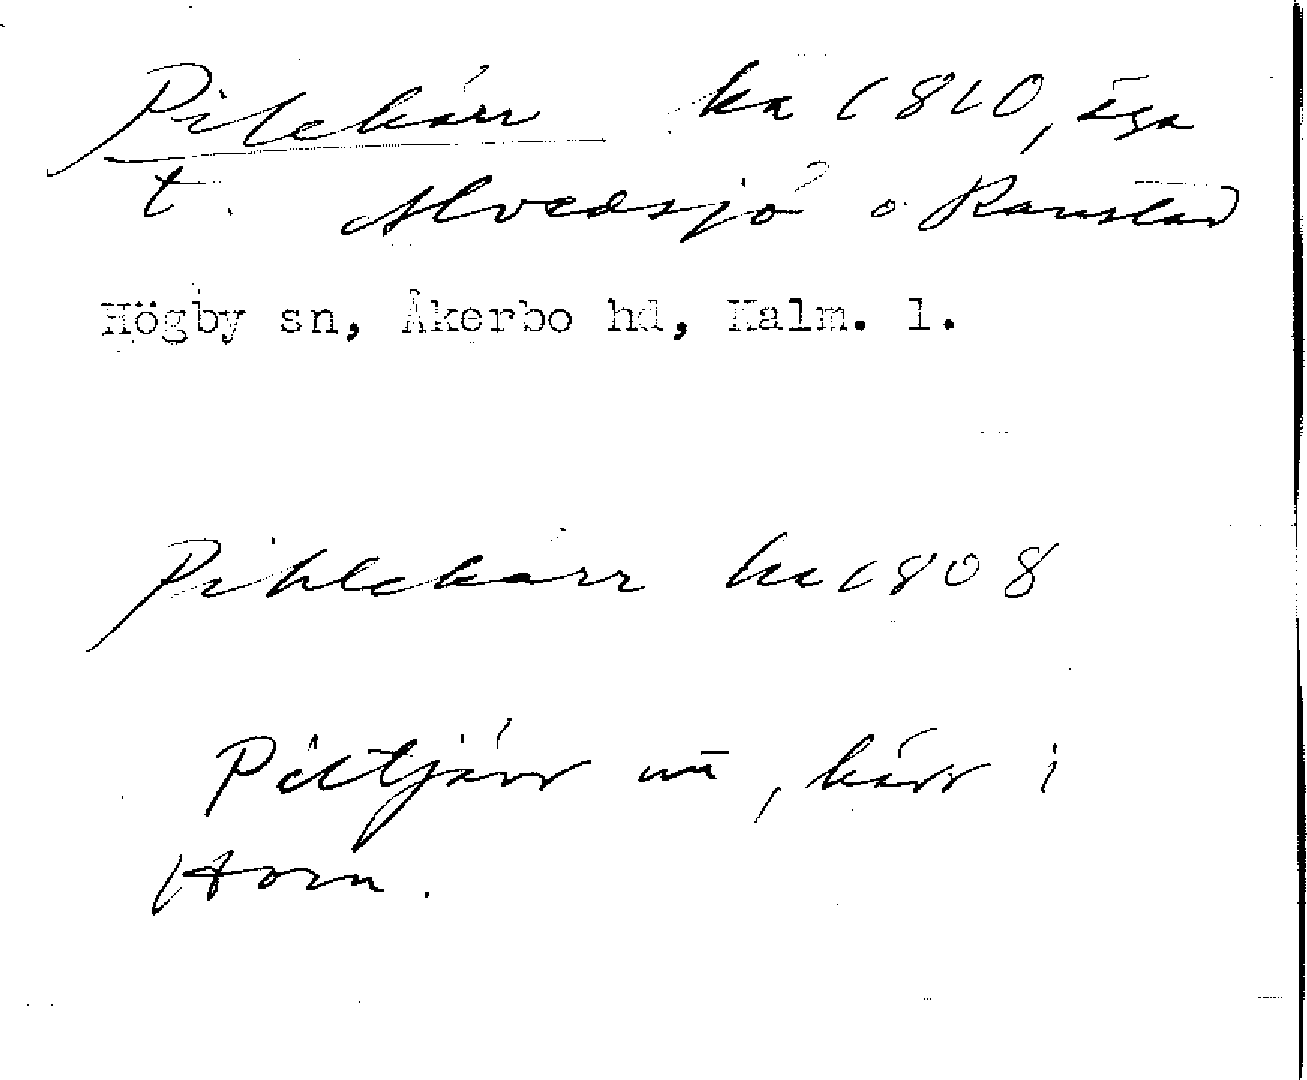 Pilekärr ka 1810, äga
t. Alvedsjö o Ramslad
Högby sn, Åkerbo hd, Kalm. l.
Pihlekärr ka 1808
Piltjärr nu, kärr i
Horn.